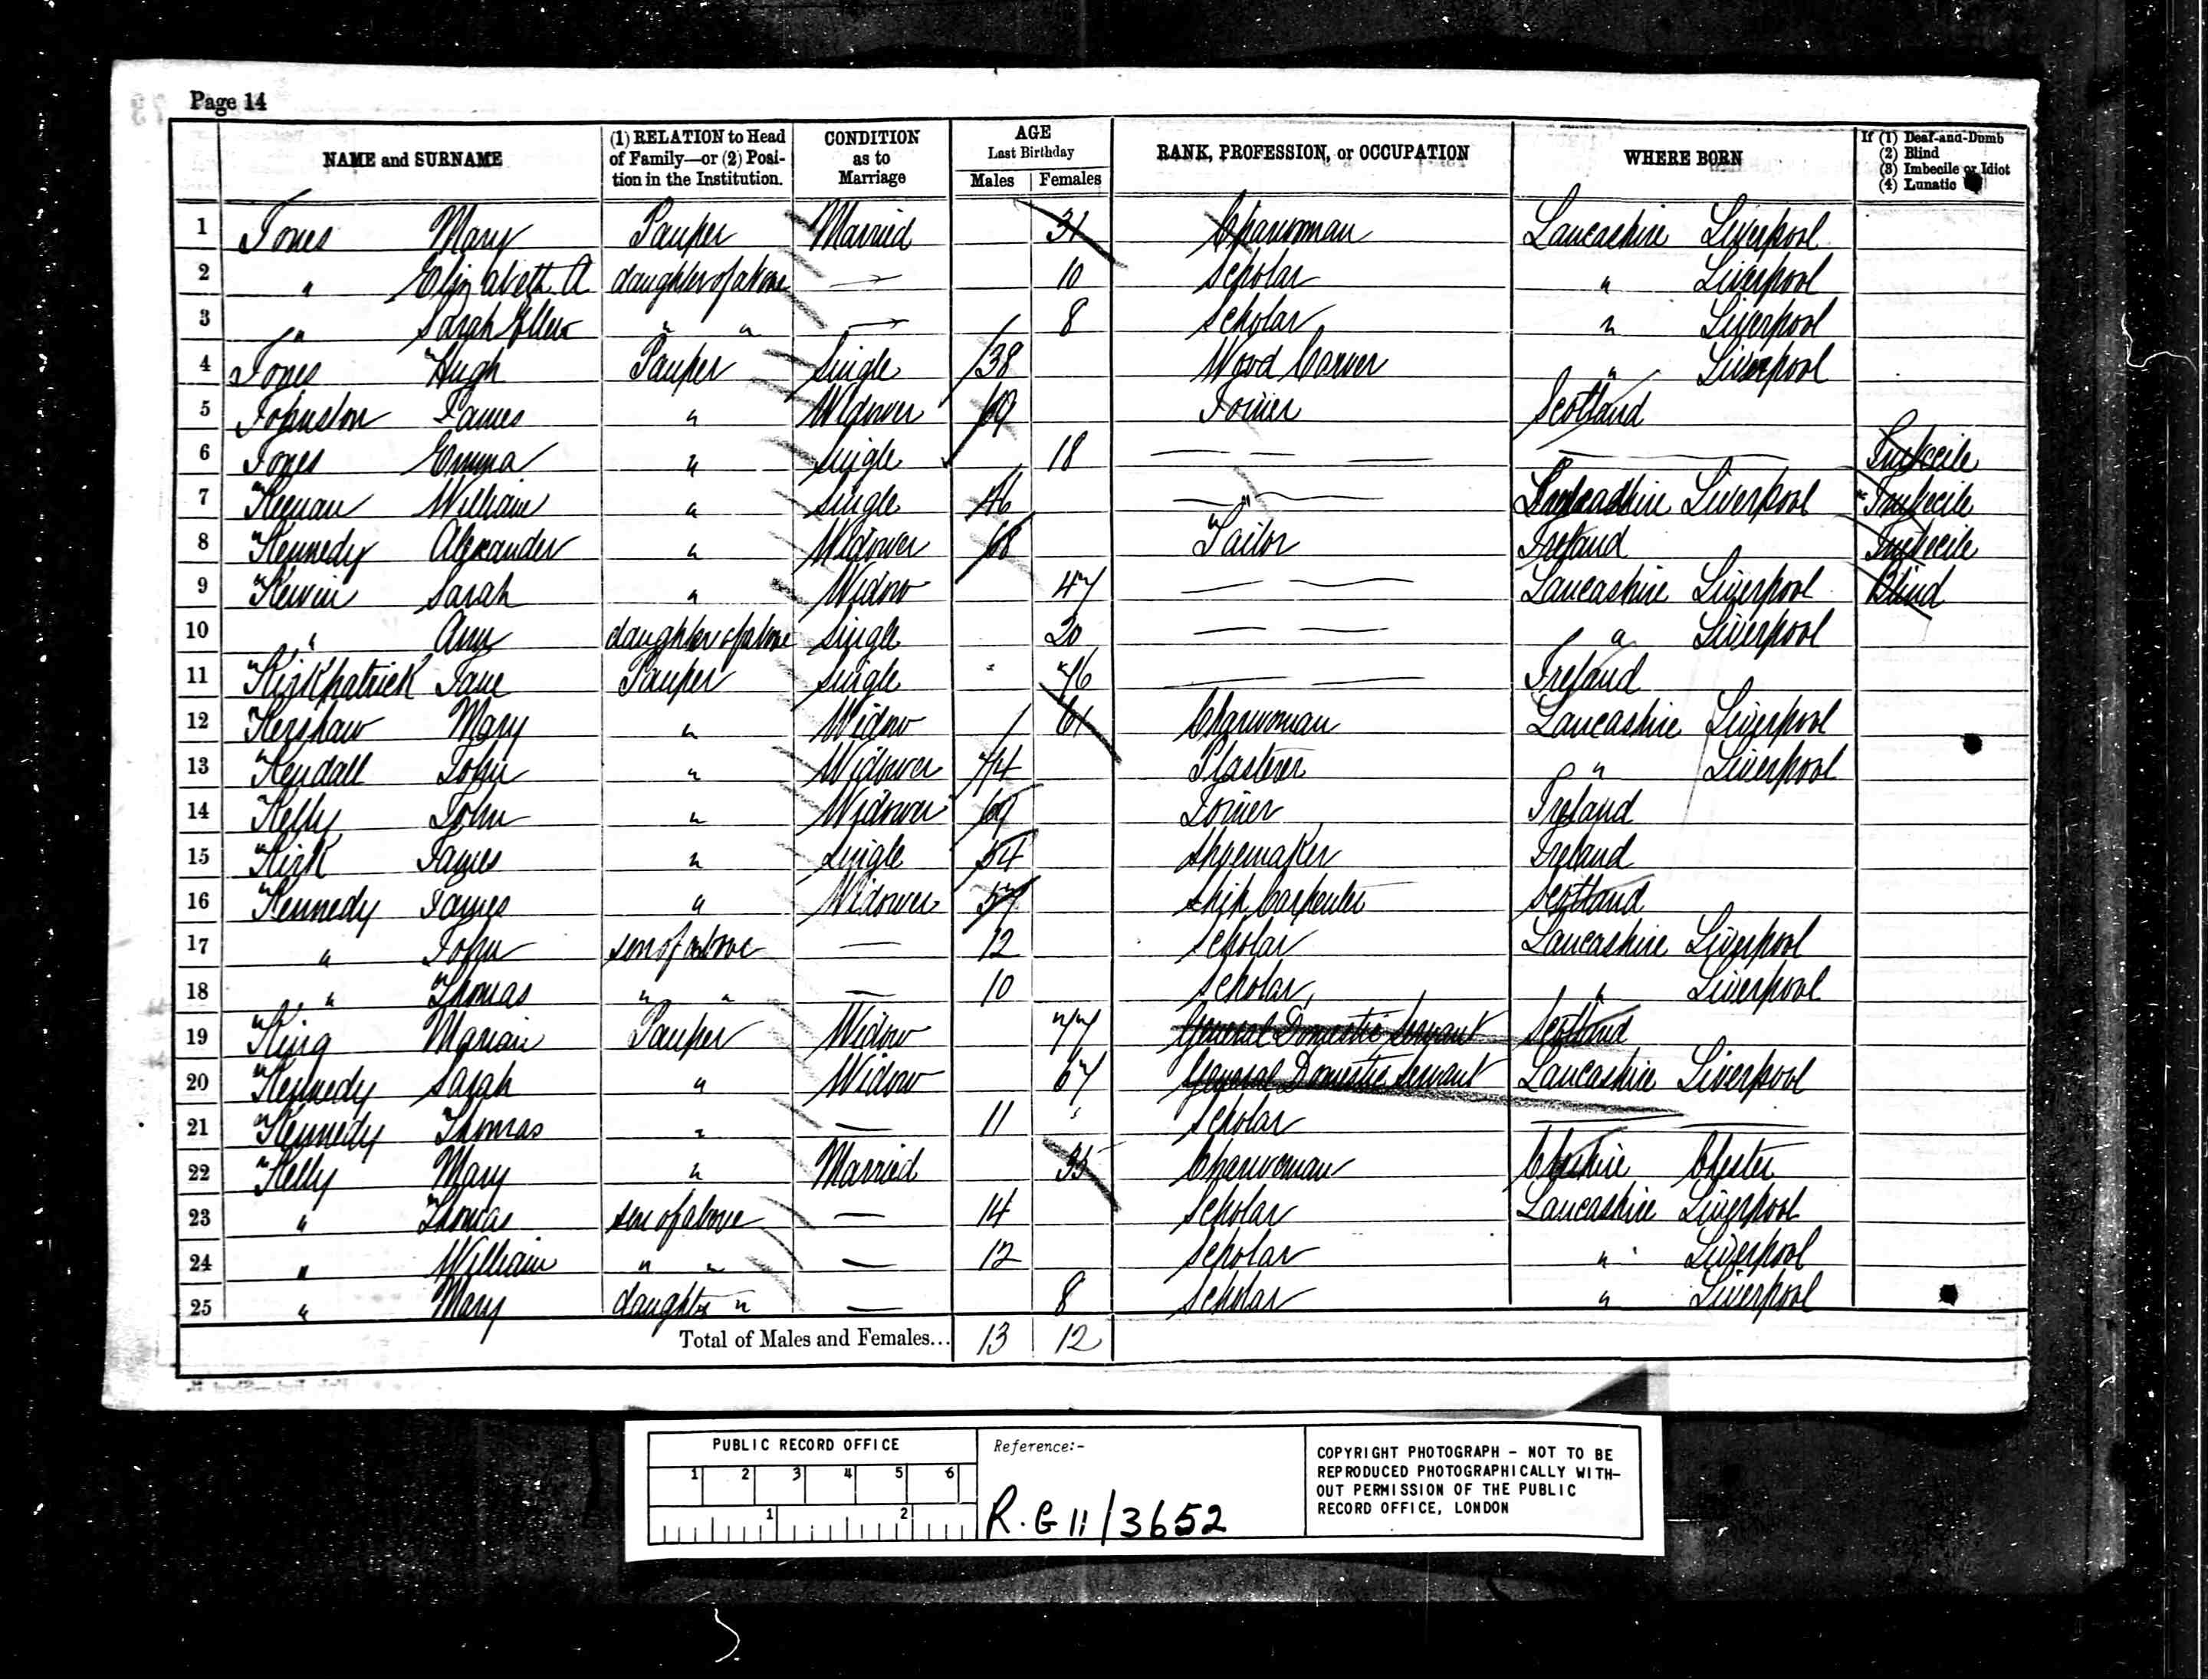 Page 14
NAME and SURNAME (1) RELATION to Head of Family—or (2) Position in the Institution. CONDITION as to Marriage AGE Last Birthday Males Females RANK, PROFESSION, or OCCUPATION WHERE BORN If (1) Deaf-and-Dumb (2) Blind (3) Imbecile or Idiot (4) Lunatic
1 Jones Mary Pauper Married 31 Charwoman Lancashire Liverpool
2 " Elizabeth A daughter of above — 10 Scholar " Liverpool
3 " Sarah Ellen " " — 8 Scholar " Liverpool
4 Jones Hugh Pauper Single 38 Wood Carver " Liverpool
5 Johnston James " Widower 69 Joiner Scotland
6 Jones Emma " Single 18 — — — — Imbecile
7 Keenan William " Single 46 — — Lancashire Liverpool Imbecile
8 Kennedy Alexander " Widower 68 Tailor Ireland Imbecile
9 Kewin Sarah " Widow 47 — — Lancashire Liverpool Blind
10 " Ann daughter of above Single 20 — — " Liverpool
11 Kirkpatrick Jane Pauper Single 76 — — Ireland
12 Kershaw Mary " Widow 61 Charwoman Lancashire Liverpool
13 Kendall John " Widower 74 Plasterer " Liverpool
14 Kelly John " Widower 69 Joiner Ireland
15 Kirk James " Single 54 Shoemaker Ireland
16 Kennedy James " Widower 57 Ship Carpenter Scotland
17 " John son of above — 12 Scholar Lancashire Liverpool
18 " Thomas " " — 10 Scholar " Liverpool
19 King Marian Pauper Widow 77 General Domestic Servant Scotland
20 Kennedy Sarah " Widow 67 General Domestic Servant Lancashire Liverpool
21 Kennedy Thomas " — 11 Scholar — —
22 Kelly Mary " Married 35 Charwoman Cheshire Chester
23 " Thomas son of above — 14 Scholar Lancashire Liverpool
24 " William " " — 12 Scholar " Liverpool
25 " Mary daughter " — 8 Scholar " Liverpool
Total of Males and Females... 13 12
PUBLIC RECORD OFFICE
1 2 3 4 5 6
1 2
Reference:-
R.G 11/3652
COPYRIGHT PHOTOGRAPH - NOT TO BE
REPRODUCED PHOTOGRAPHICALLY WITH-
OUT PERMISSION OF THE PUBLIC
RECORD OFFICE, LONDON